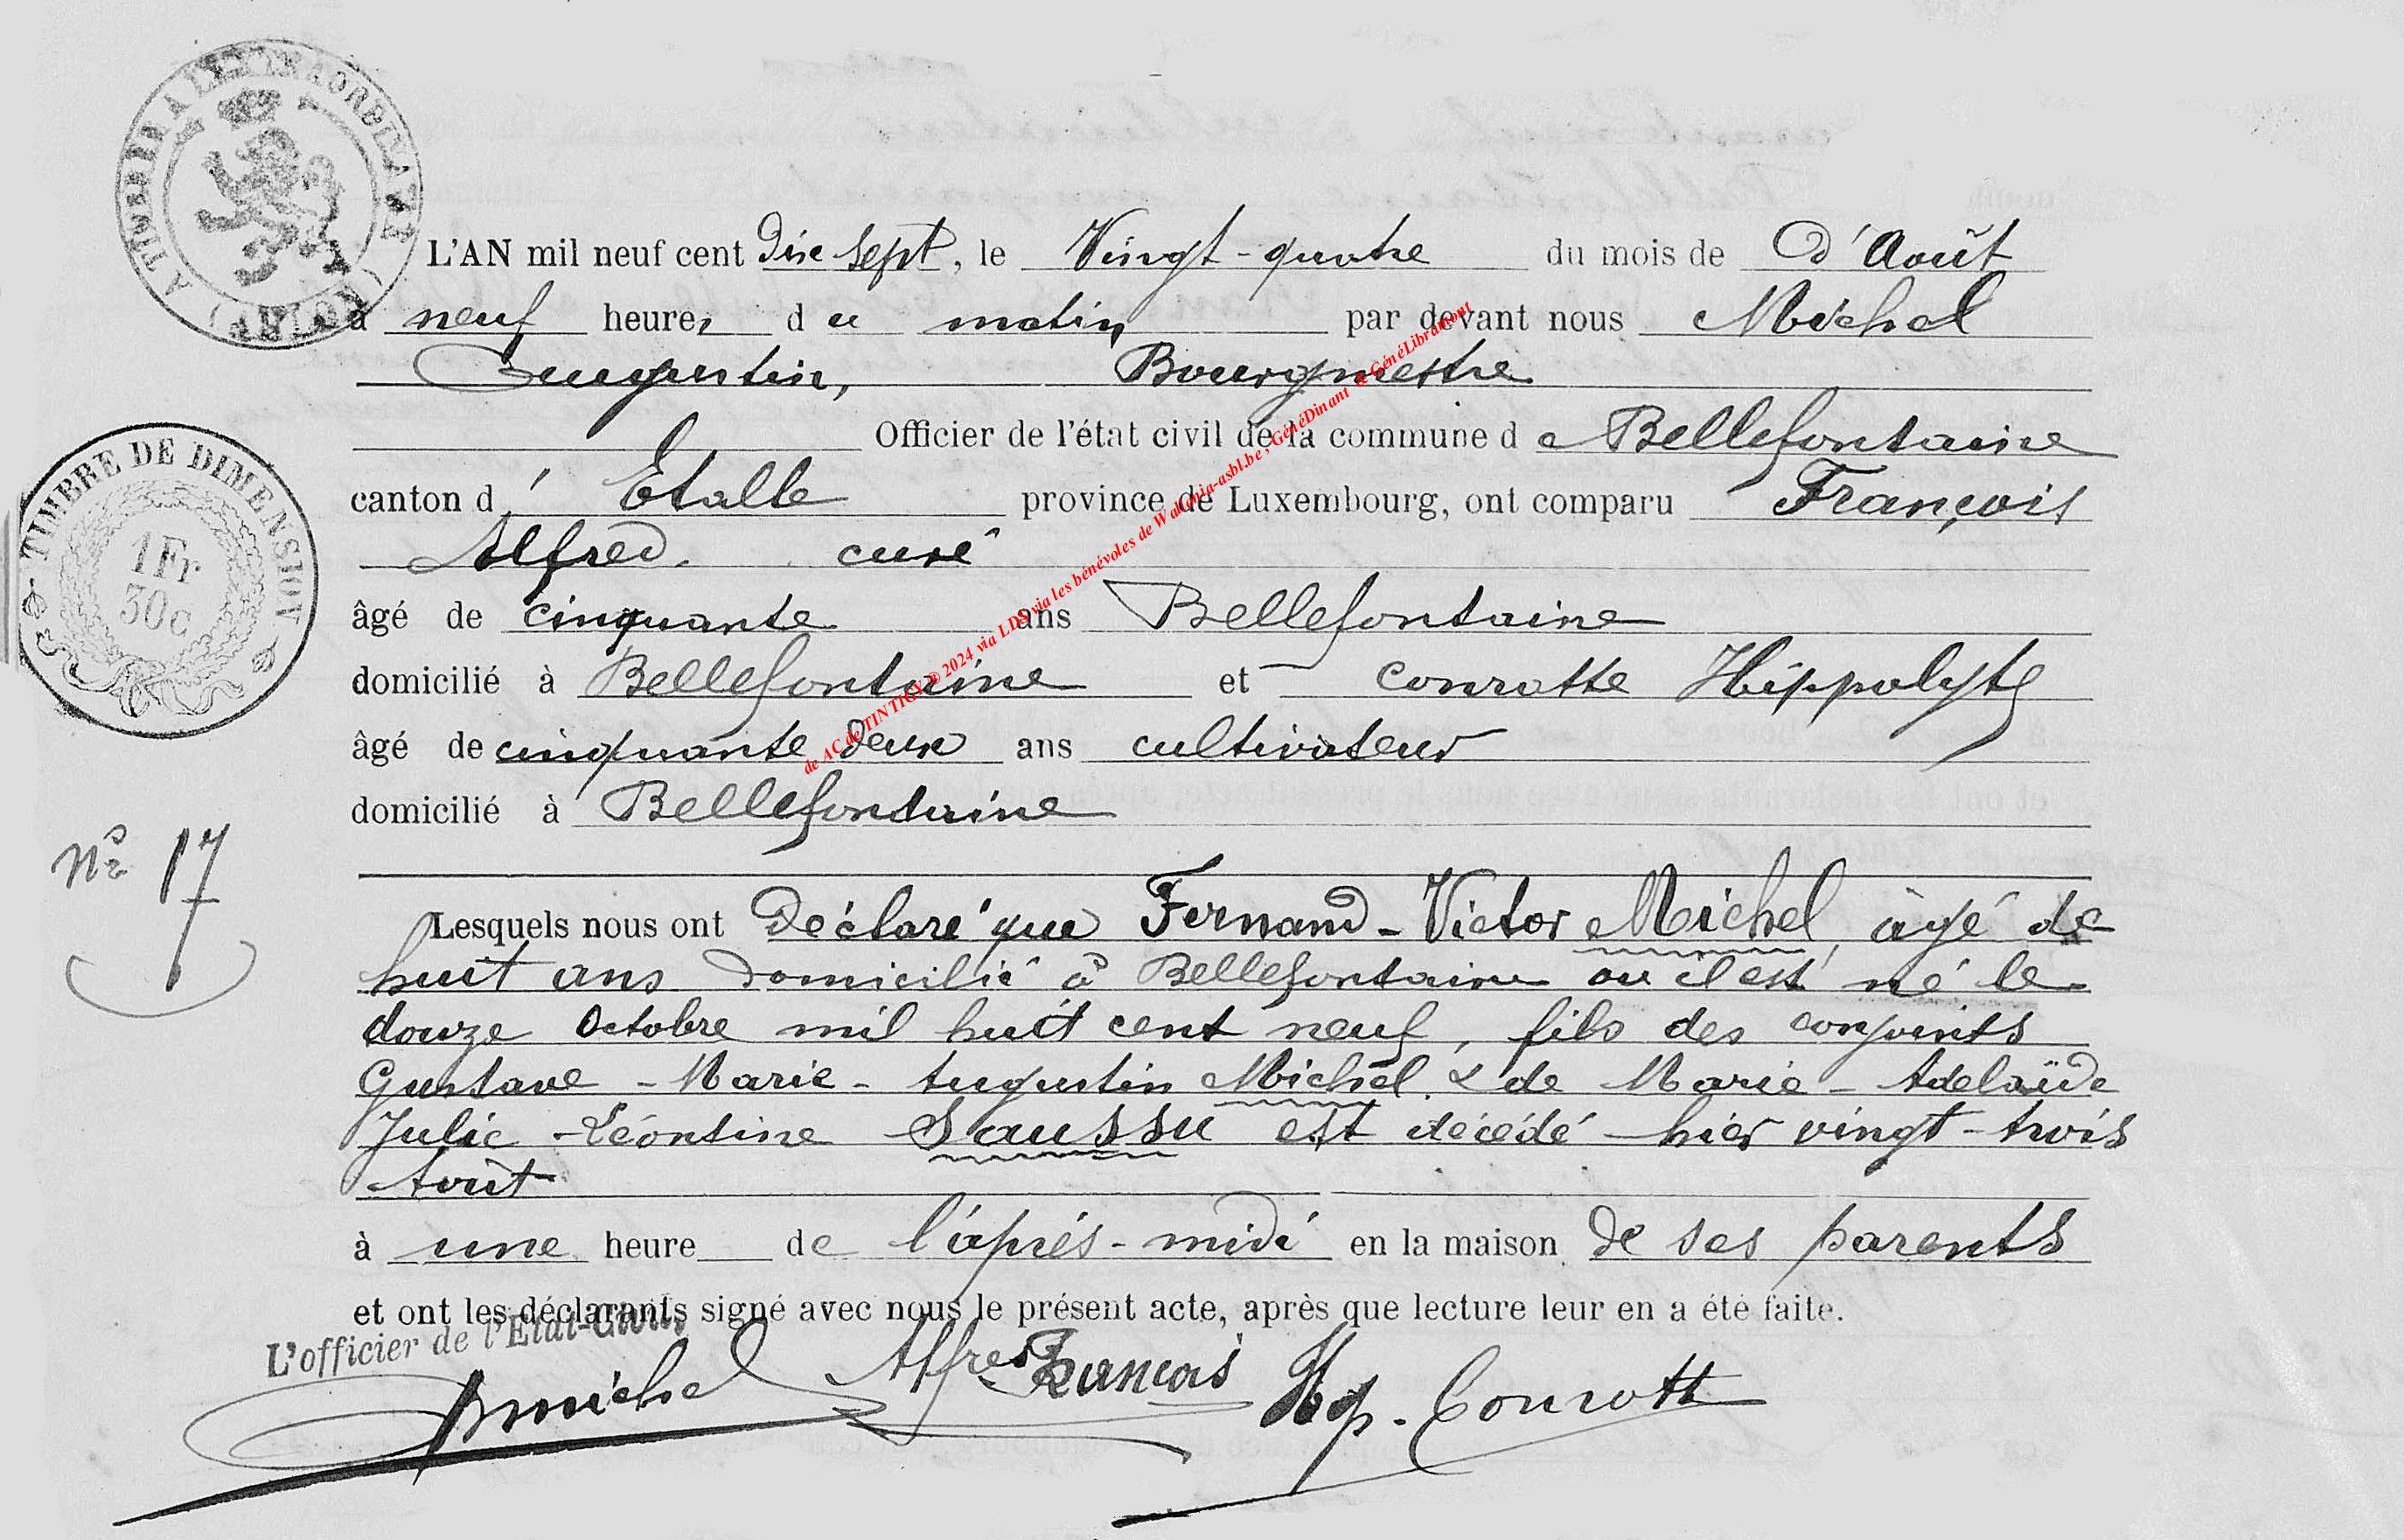 A TIMBRER A L'EXTRAORDINAIRE
L'AN mil neuf cent dix sept, le Vingt-quatre du mois de d'Août
à neuf heures du matin par devant nous Michel
Augustin, Bourgmestre
Officier de l'état civil de la commune de Bellefontaine
TIMBRE DE DIMENSION
1 Fr
30c
canton d' Etalle province de Luxembourg, ont comparu François
Alfred. curé
âgé de cinquante ans Bellefontaine
domicilié à Bellefontaine et Conrotte Hippolyte
âgé de cinquante deux ans cultivateur
domicilié à Bellefontaine
No 17
Lesquels nous ont Déclaré que Fernand-Victor Michel, âgé de
huit ans domicilié à Bellefontaine ou il est né le
douze Octobre mil huit cent neuf, fils des conjoints
Gustave-Marie-Augustin Michel & de Marie-Adelaïde
Julie-Léontine Saussu est décédé hier vingt-trois
Août
à une heure de l'après-midi en la maison de ses parents
et ont les déclarants signé avec nous le présent acte, après que lecture leur en a été faite.
L'officier de l'Etat-Civil,
AMichel Alfred François Hyp. Conrotte
de AC de TINTIGY © 2024 via LDS via les bénévoles de Wallonia-asbl.be, GénéDinant & GénéLibramont